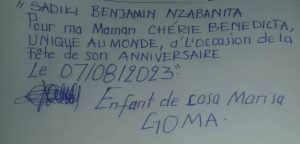 "SADIKI BENJAMIN NZABANITA
Pour ma Maman CHÉRIE BENEDICTA,
UNIQUE AU MONDE, à L'occasion de la
Fête de son ANNIVERSAIRE
Le 07/08/2023"
Enfant de casa Marisa
GOMA.